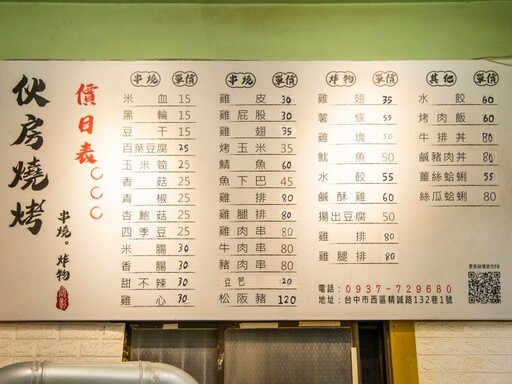 伙房燒烤
串燒。炸物
價目表
串燒 單價
米血 15
黑輪 15
豆干 15
百葉豆腐 25
玉米筍 25
香菇 25
青椒 25
杏鮑菇 25
四季豆 25
米腸 30
香腸 30
甜不辣 30
雞心 30
串燒 單價
雞皮 30
雞屁股 30
雞翅 35
烤玉米 35
鯖魚 60
魚下巴 45
雞排 80
雞腿排 80
雞肉串 80
牛肉串 80
豬肉串 80
豆包 20
松阪豬 120
炸物 單價
雞翅 35
薯條 55
雞塊 50
魷魚 50
水餃 55
鹹酥雞 60
揚出豆腐 50
雞排 80
雞腿排 80
其他 單價
水餃 60
烤肉飯 60
牛排丼 80
鹹豬肉丼 80
薑絲蛤蜊 55
絲瓜蛤蜊 80
電話：0937-729680
地址：台中市西區精誠路132巷1號